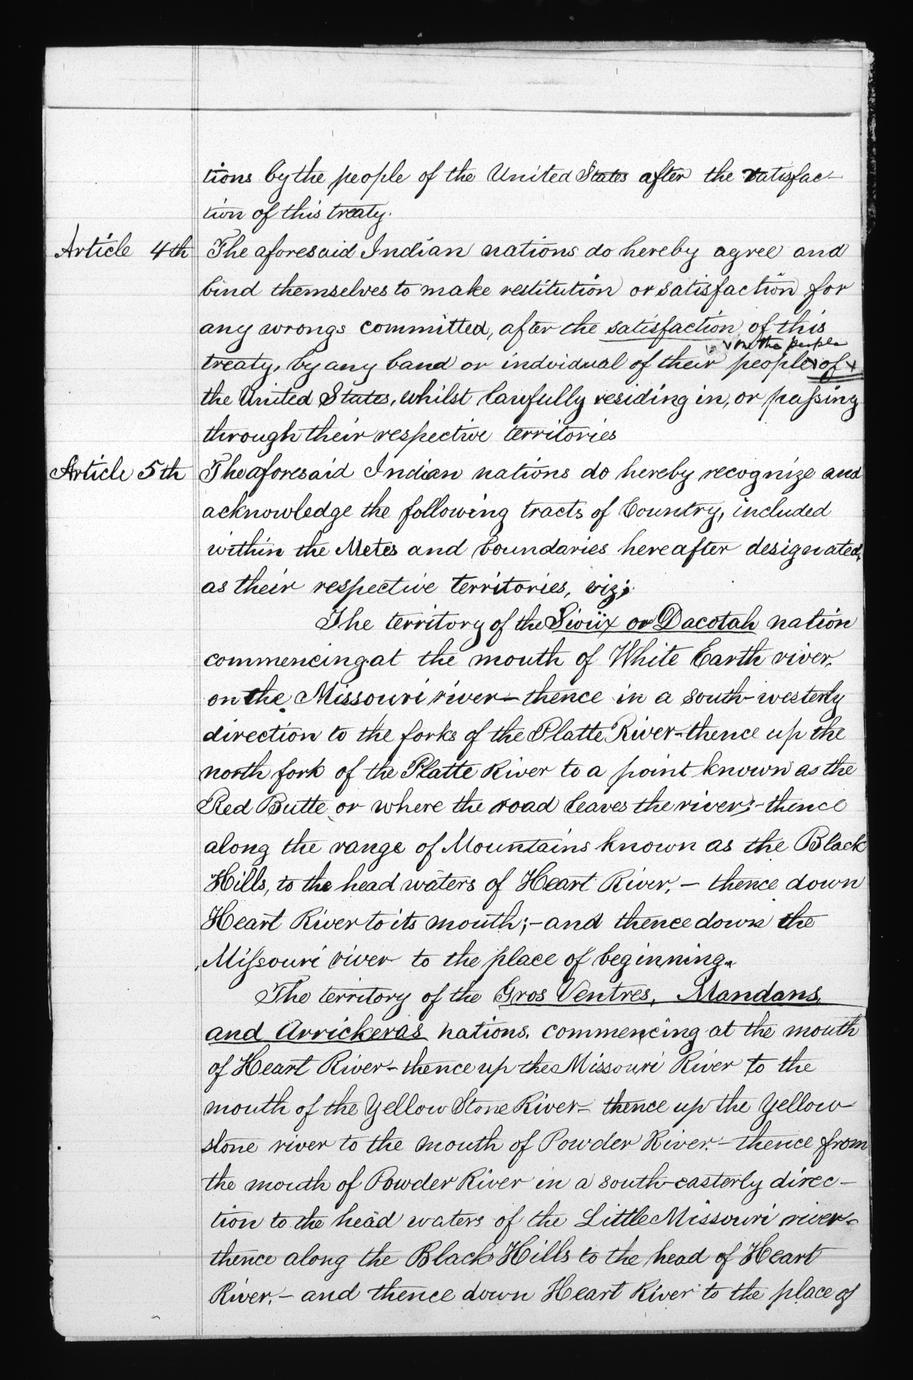 tions by the people of the United States after the ratisfac-
tion of this treaty.
Article 4th The aforesaid Indian nations do hereby agree and
bind themselves to make restitution or satisfaction for
any wrongs committed, after the satisfaction of this
on the people
treaty, by any band or individual of their people, of
the United States, whilst lawfully residing in, or passing
through their respective territories
Article 5th The aforesaid Indian nations do hereby recognize and
acknowledge the following tracts of Country, included
within the Metes and boundaries hereafter designated,
as their respective territories, viz;
The territory of the Sioüx or Dacotah nation
commencing at the mouth of White Earth river,
on the Missouri river – thence in a south-westerly
direction to the forks of the Platte River – thence up the
north fork of the Platte River to a point known as the
Red Butte, or where the road leaves the river; – thence
along the range of Mountains known as the Black
Hills, to the head waters of Heart River, – thence down
Heart River to its mouth; – and thence down the
Missouri river to the place of beginning.
The territory of the Gros Ventres, Mandans,
and Arrickeras nations, commencing at the mouth
of Heart River – thence up the Missouri River to the
mouth of the Yellow Stone River – thence up the Yellow
stone river to the mouth of Powder River – thence from
the mouth of Powder River in a south-easterly direc-
tion to the head waters of the Little Missouri river –
thence along the Black Hills to the head of Heart
River, – and thence down Heart River to the place of